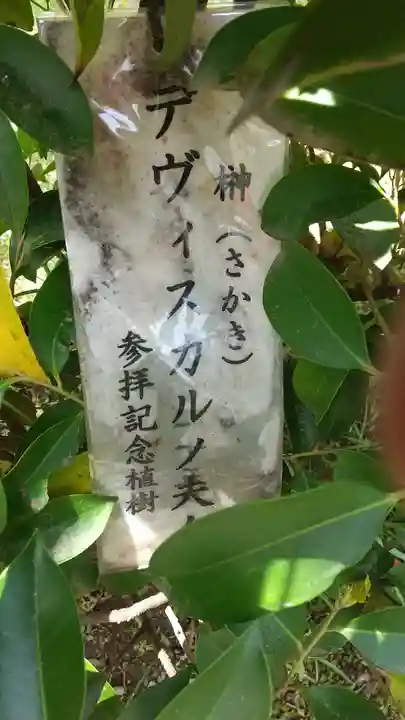 榊(さかき)
デヴィスカルノ夫
参拝記念植樹